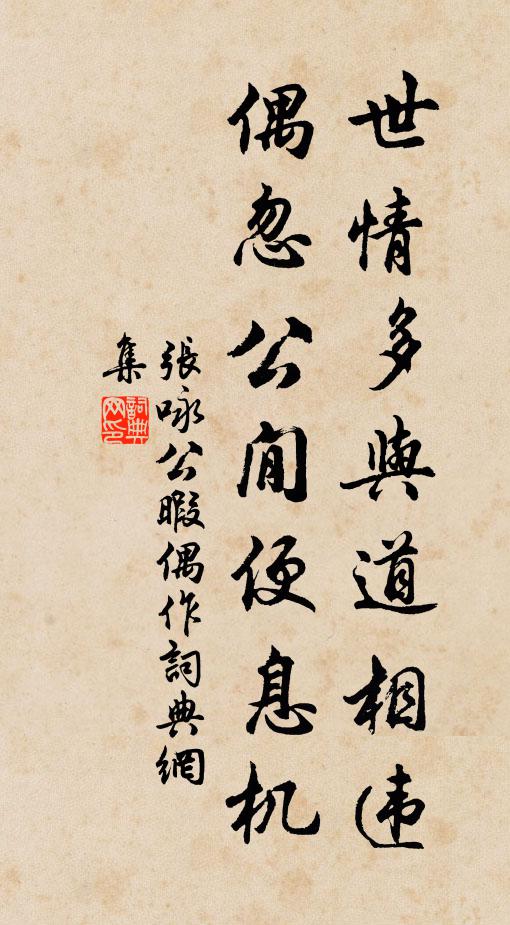 世情多與道相违
偶忽公閒便息机
張咏公暇偶作詞典網
集
詞典网印